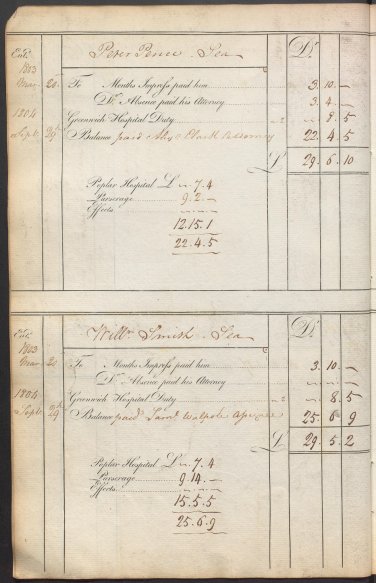 Ent.d Peter Pence Sea Dr.
1803
Mar. 20 To Months Impress paid him 3. 10. –
D.o Absence paid his Attorney 3. 4. –
1804 Greenwich Hospital Duty „ 8. 5
Sept. 29 Balance paid Attorney 22. 4. 5
£ 29. 6. 10
Poplar Hospital £ „. 7. 4
Parserage 9. 2. –
Effects
12. 15. 1
22. 4. 5
Ent.d Will.m Smith Sea Dr.
1803
Mar. 20 To Months Impress paid him 3. 10. –
D.o Absence paid his Attorney
1804 Greenwich Hospital Duty „ 8. 5
Sept. 29 Balance paid Sam.l Walpole 25. 6. 9
£ 29. 5. 2
Poplar Hospital £ „. 7. 4
Parserage 9. 14. –
Effects
15. 5. 5
25. 6. 9